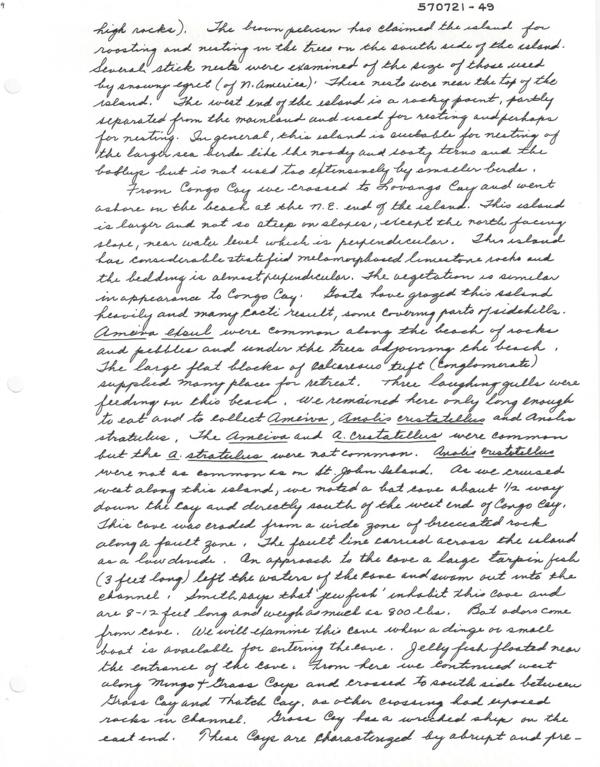 570721-49
high rocks). The brown pelican has claimed the island for
roosting and nesting in the trees on the south side of the island.
Several stick nests were examined of the size of those used
by snowy egret (of N. America). These nests were near the top of the
island. The west end of the island is a rocky point, partly
separated from the mainland and used for resting and perhaps
for nesting. In general, this island is suitable for nesting of
the larger sea birds like the noody and sooty terns and the
boobys but is not used too extensively by smaller birds.
From Congo Cay we crossed to Lovango Cay and went
ashore on the beach at the N.E. end of the island. This island
is larger and not so steep on slopes, except the north facing
slope, near water level which is perpendicular. This island
has considerable stratified metamorphosed limestone rocks and
the bedding is almost perpendicular. The vegetation is similar
in appearance to Congo Cay. Goats have grazed this island
heavily and many cacti result, some covering parts of sidehills.
Ameiva exsul were common along the beach of rocks
and pebbles and under the trees adjoining the beach.
The large flat blocks of calcareous tuft (conglomerate)
supplied many places for retreat. Three laughing gulls were
feeding on this beach. We remained here only long enough
to eat and to collect Ameiva, Anolis cristatellus and Anolis
stratulus. The Ameiva and A. cristatellus were common
but the A. stratulus were not common. Anolis cristatellus
were not as common as on St. John Island. As we cruised
west along this island, we noted a bat cave about 1/2 way
down the Cay and directly south of the west end of Congo Cay.
This cave was eroded from a wide zone of brecciated rock
along a fault zone. The fault line carried across the island
as a low divide. On approach to the cave a large tarpin fish
(3 feet long) left the waters of the cave and swam out into the
channel. Smith says that 'jew fish' inhabit this cave and
are 8-12 feet long and weigh as much as 800 lbs. Bat odors come
from cave. We will examine this cave when a dinge or small
boat is available for entering the cave. Jelly fish floated near
the entrance of the cave. From here we continued west
along Mingo & Grass Cays and crossed to south side between
Grass Cay and Thatch Cay, as other crossing had exposed
rocks in channel. Grass Cay has a wrecked ship on the
east end. These Cays are characterized by abrupt and pre-